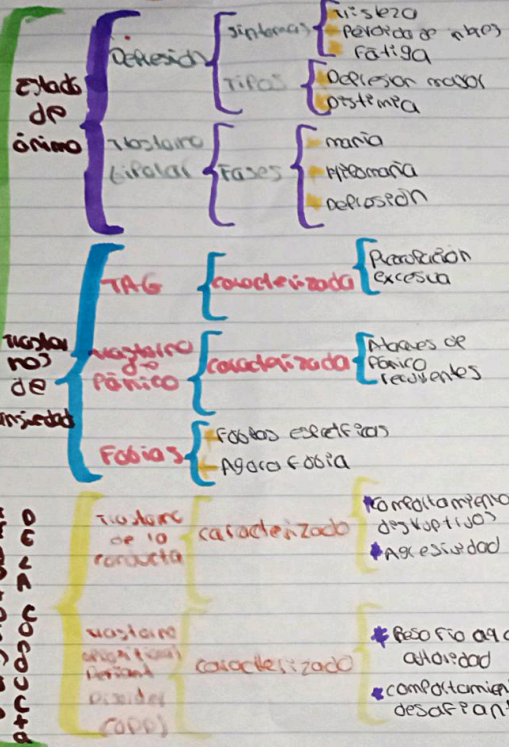 Estado
de
ánimo
Depresión
Síntomas
Tristeza
Pérdida de interes
Fatiga
Tipos
Depresion mayor
Distimia
Trastorno
bipolar
Fases
mania
Hipomania
Depresión
Trastor
nos
de
ansiedad
TAG
caracterizada
Preocupación
excesiva
Trastorno
de
Pánico
caracterizada
Ataques de
Pánico
recurrentes
Fobias
Fobias especificas
Agorafobia
Trastorno
de la
conducta
caracterizado
comportamiento
disruptivos
Agresividad
trastorno
Defiant
Disorder
(ODD)
caracterizado
autoridad
comportamien
desafiant